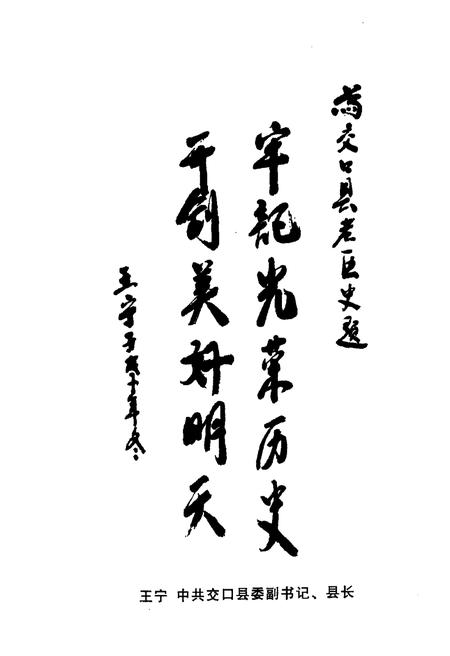 為交口县老区史题
牢記光荣历史
开创美好明天
王宁于戊子年冬
王宁 中共交口县委副书记、县长